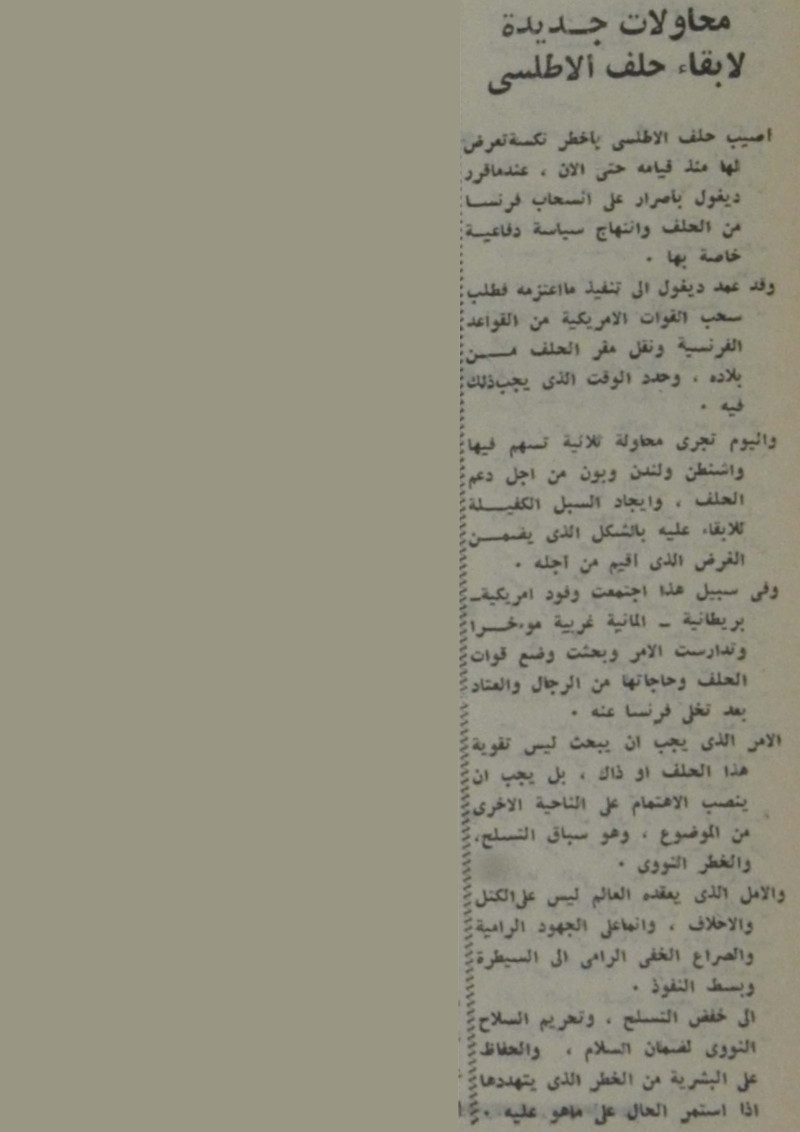 محاولات جـــديدة
لابقاء حلف الاطلسى
اصيب حلف الاطلسى باخطر نكسة تعرض
لها منذ قيامه حتى الان ، عندماقرر
ديغول باصرار على انسحاب فرنســا
من الحلف وانتهاج سياسة دفاعيــة
خاصة بها .
وقد عمد ديغول الى تنفيذ مااعتزمه فطلب
سحب القوات الامريكية من القواعد
الفرنسية ونقل مقر الحلف مـــن
بلاده ، وحدد الوقت الذى يجب ذلك
فيه .
واليوم تجرى محاولة ثلاثية تسهم فيها
واشنطن ولندن وبون من اجل دعم
الحلف ، وايجاد السبل الكفيـــلة
للابقاء عليه بالشكل الذى يضمـــن
الغرض الذى اقيم من اجله .
وفى سبيل هذا اجتمعت وفود امريكيةـ
بريطانية ـ المانية غربية موءخـــرا
وتدارست الامر وبحثت وضع قوات
الحلف وحاجاتها من الرجال والعتاد
بعد تخلى فرنسا عنه .
الامر الذى يجب ان يبحث ليس تقوية
هذا الحلف او ذاك ، بل يجب ان
ينصب الاهتمام على الناحية الاخرى
من الموضوع ، وهو سباق التسلح،
والخطر النووى .
والامل الذى يعقده العالم ليس على الكتل
والاحلاف ، وانما على الجهود الرامية
والصراع الخفى الرامى الى السيطرة
وبسط النفوذ .
الى خفض التسلح ، وتحريم السلاح
النووى لضمان السلام ، والحفاظ
على البشرية من الخطر الذى يتهددها
اذا استمر الحال على ماهو عليه .